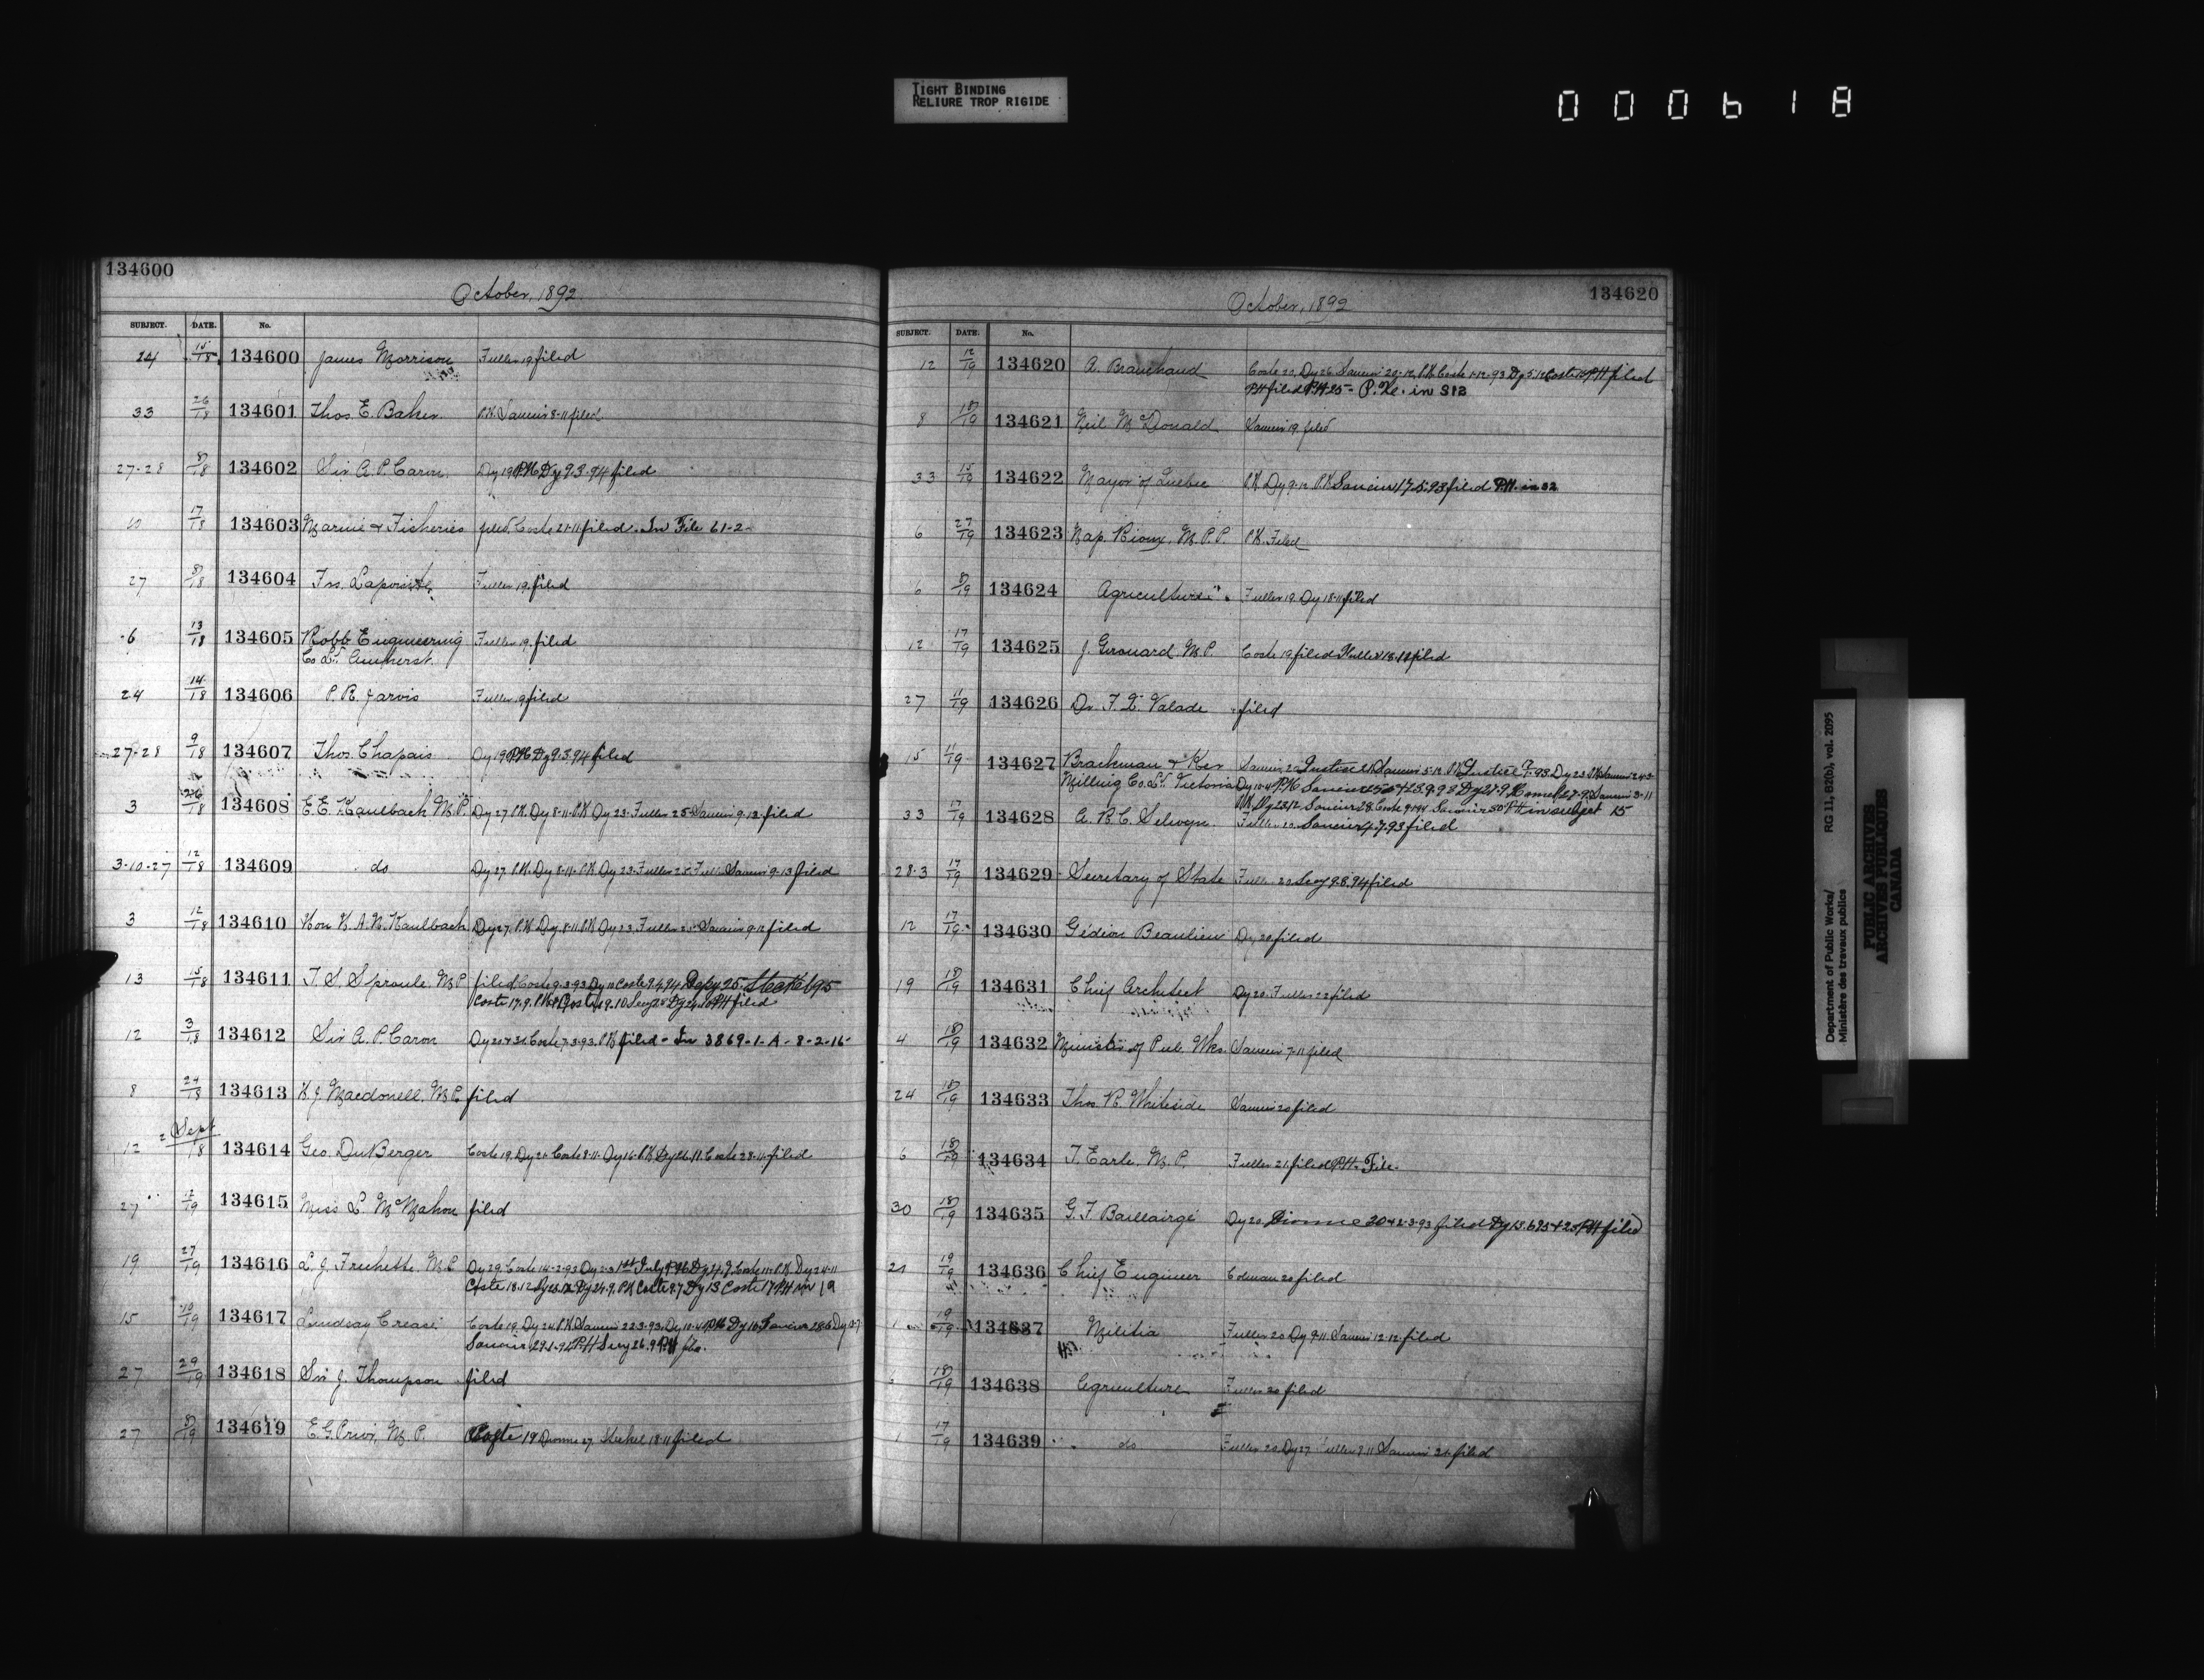 TIGHT BINDING
RELIURE TROP RIGIDE
000618
134600
October, 1892
SUBJECT. DATE. No.
24 15/18 134600 James Morrison Fuller 19 filed
33 26/18 134601 Thos. E. Baker P.K. Saucier 8-11 filed
27-28 8/18 134602 Sir A. P. Caron Dy 19 P.H. Dy 9.3.94 filed
10 17/18 134603 Marine & Fisheries filed. Coste 21-11 filed. In File 61-2-
27 8/18 134604 Frs. Lapointe Fuller 19 filed
6 13/18 134605 Robb Engineering Fuller 19 filed
Co Ld. Amherst.
24 14/18 134606 P. R. Jarvis Fuller 19 filed
27-28 9/18 134607 Thos. Chapais Dy 19 P.H. Dy 9.3.94 filed
3 /18 134608 E. E. Kaulbach M.P. Dy 27 P.K. Dy 8-11 P.K. Dy 23 Fuller 25 Saucier 9-12 filed
3-10-27 12/18 134609 do Dy 27 P.K. Dy 8-11 P.K. Dy 23 Fuller 25 Saucier 9-13 filed
3 12/18 134610 Hon H. A. N. Kaulbach Dy 27 P.K. Dy 8-11 P.K. Dy 23 Fuller 25 Saucier 9-12 filed
13 15/18 134611 T. S. Sproule M.P. filed Coste 9-3-93 Dy 10 Coste 9.4.94 Depy 25
Coste 17.9. P.K. Coste 19.10 Secy 25 Dy 24.10 P.H. filed
12 3/18 134612 Sir A. P. Caron Coste 7.3.93. P.K. filed - In 3869-1-A-8-2-16-
8 24/18 134613 H. J. Macdonell, M.P. filed
12 2 Sept/18 134614 Geo. DuBerger Coste 19. Dy 21 Coste 8-11 Dy 16 P.K. Dy 26.11 Coste 28-11 filed
27 12/19 134615 Miss L. McMahon filed
19 27/19 134616 L. J. Frechette, M.P. Dy 29 Coste 14-2-93 Dy 2-3 1st July P.H. Dy 27.9 Coste 11 P.K. Dy 24-11
Coste 18.12 Dy 24.9. P.K. Coste 2.7 Dy 13 Coste 17 P.H. in 19
15 10/19 134617 Lindsay Crease Coste 19. Dy 24 P.K. Saucier 22.3.93. Dy 10-4 P.H. Dy 16. Saucier 28.6 Dy
Saucier 29.1.94 P.H. Secy 26.9 P.H. file.
27 29/19 134618 Sir J. Thompson filed
27 8/19 134619 E. G. Prior, M.P. Coste 19 Dionne 27. Steckel 18-11 filed
134620
October, 1892
SUBJECT. DATE. No.
12 12/19 134620 A. Branchaud Coste 20, Dy 26 Saucier 20-12, P.K. Coste 1-12-93 Dy 5.12 Coste P.H. filed
P.H. filed P.H. 25 - P. He. in S12
8 18/19 134621 Neil McDonald Saucier 19 filed
33 15/19 134622 Mayor of Quebec P.K. Dy 9-12 P.K. Saucier 17.5.93 filed P.H. in 32
6 27/19 134623 Nap. Rioux, M.P.P. P.K. Filed
6 8/19 134624 Agriculture Fuller 19 Dy 18-11 filed
12 17/19 134625 J. Girouard M.P. Coste 19 filed Fuller 18.12 filed
27 11/19 134626 Dr. F. X. Valade filed
15 11/19 134627 Brackman & Ker Saucier 20 Justice 21 Saucier 5-12 P.K. Justice Dy 23 P.K. Saucier
Milling Co. Ld. Victoria Dy 10-4 P.H. Saucier Dy 27.9 27-9 Saucier 3-11
P.K. Dy 23.12 Saucier 28 Coste 9.1.94 Saucier 30 P.H. in subject 15
33 17/19 134628 A. R. C. Selwyn Fuller Saucier 4.7.93 filed
28-3 17/19 134629 Secretary of State Fuller 20 Secy 9.8.94 filed
12 17/19 134630 Gédéon Beaulieu Dy 20 filed
19 18/19 134631 Chief Architect Dy 20. Fuller 22 filed
4 18/19 134632 Minister of Pub. Wks. Saucier 7-11 filed
24 18/19 134633 Thos. R. Whiteside Saucier 20 filed
6 18/19 134634 T. Earle, M.P. Fuller 21 filed P.H. File.
30 18/19 134635 G. F. Baillairgé Dy 20. Dionne filed Dy P.H. filed
21 19/19 134636 Chief Engineer Coleman 20 filed
1 19/19 134637 Militia Fuller 20 Dy 9-11 Saucier 12-12 filed
18/19 134638 Agriculture Fuller 20 filed
1 17/19 134639 do Fuller 20 Dy 27 Fuller 9.11 Saucier 21 filed
Department of Public Works/ RG 11, B2(b), vol. 2095
Ministère des travaux publics
PUBLIC ARCHIVES
ARCHIVES PUBLIQUES
CANADA